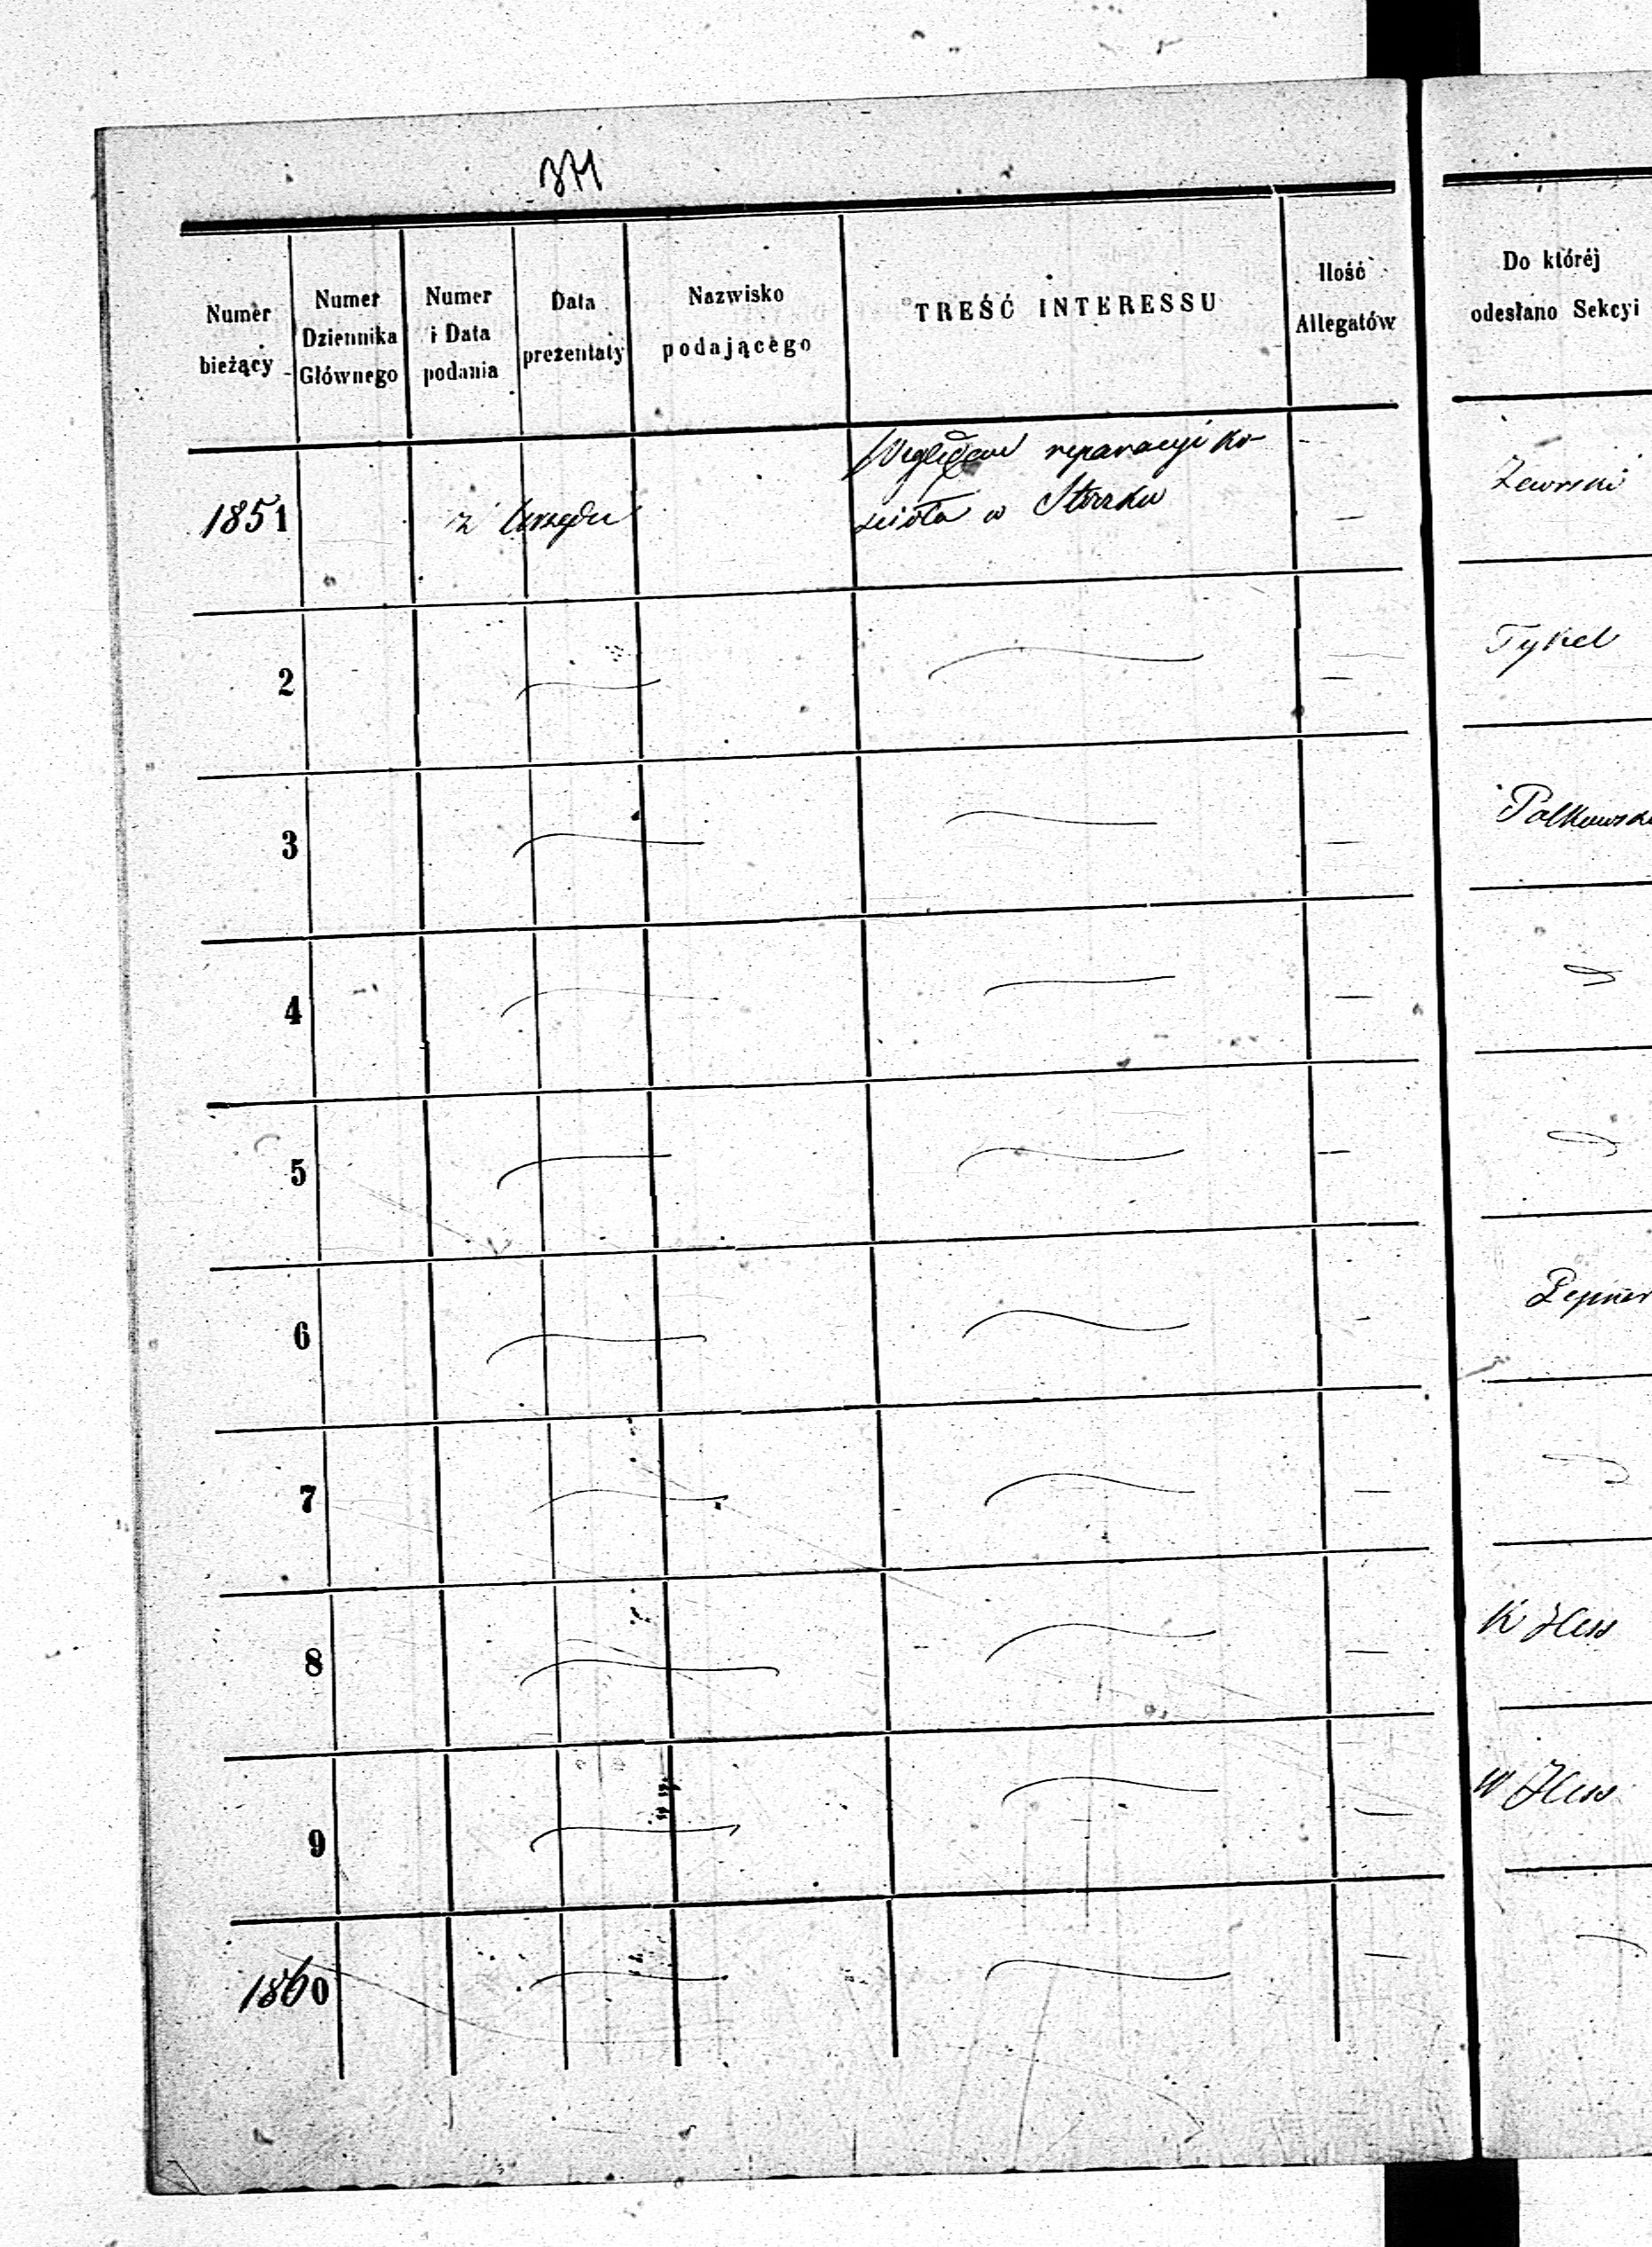 371
Numer bieżący
Numer Dziennika Głównego
Numer i Data podania
Data prezentaty
Nazwisko podającego
TREŚĆ INTERESSU
Ilość Allegatów
Do któréj odesłano Sekcyi
1851
z Urzędu
Względem reparacyi ko-
scioła w
2
Tykel
3
4
5
6
7
8
K Hess
9
W Hess
1860